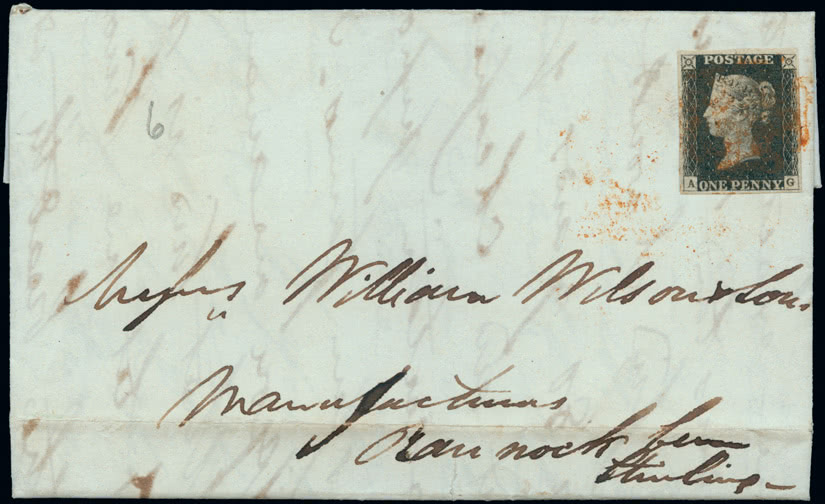 POSTAGE
A ONE PENNY G
6
Messrs William Wilson & Son
Manufacturers
Bannockburn
Stirling